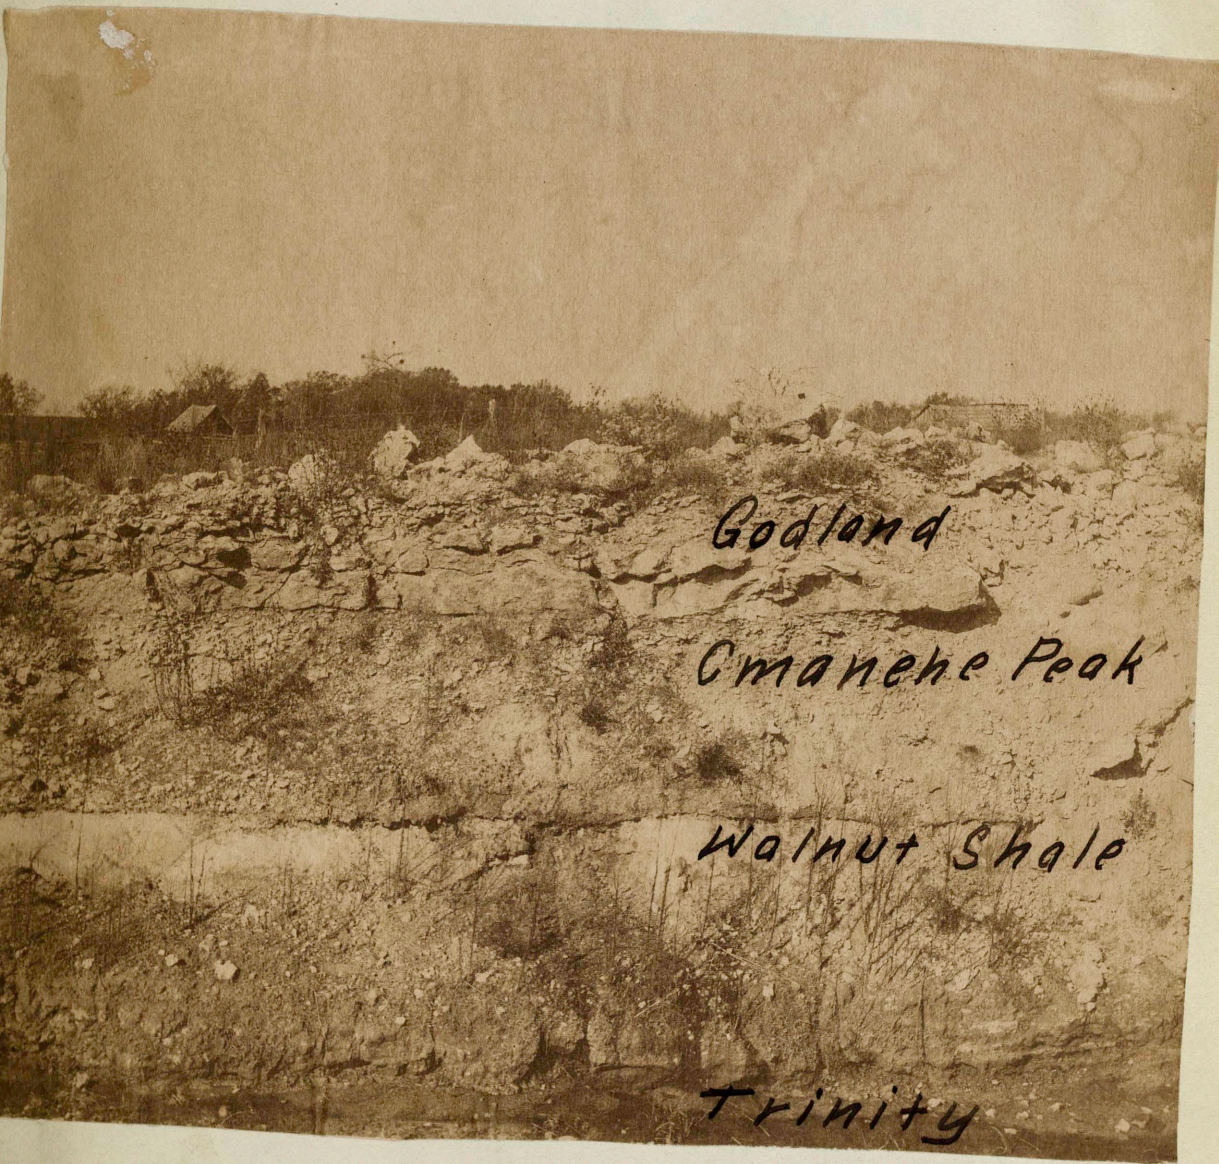 Godland
Cmanehe Peak
Walnut Shale
Trinity